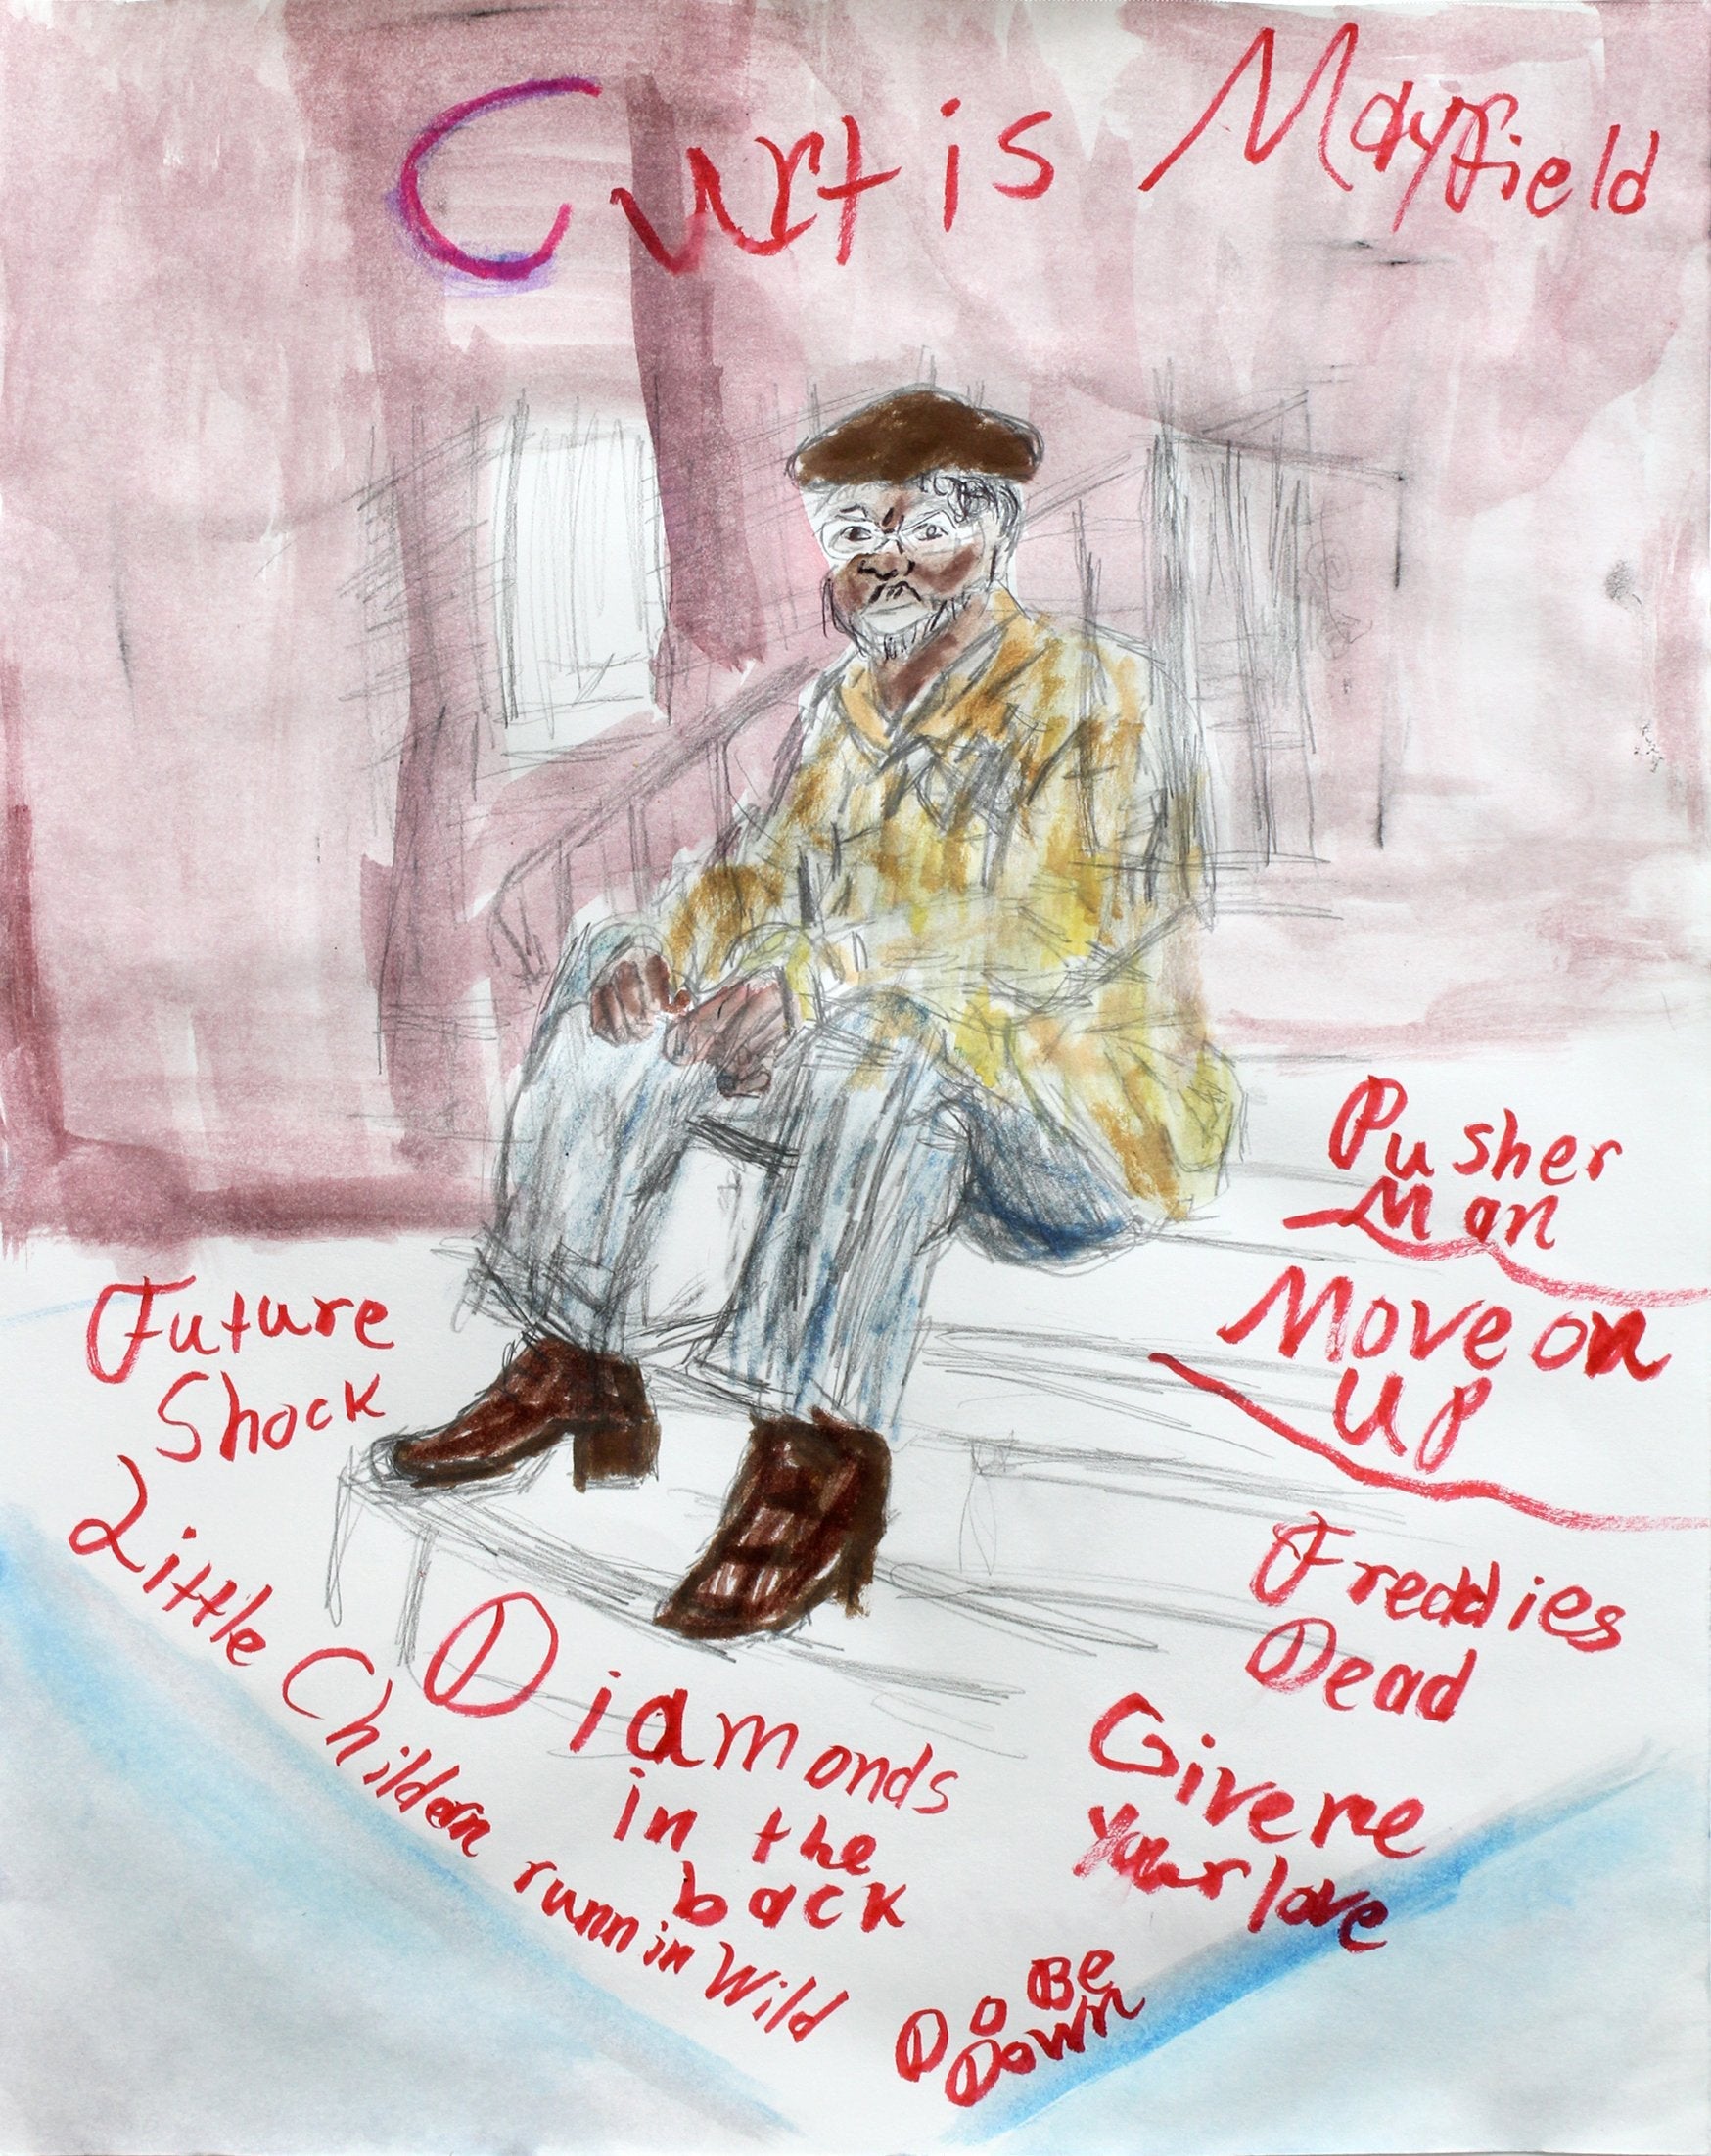 Curtis Mayfield
Pusher
Man
Move on
Up
Future
Shock
Freddies
Dead
Little Childern runnin Wild
Diamonds
in the
back
Give me
Your love
Do Be
Down